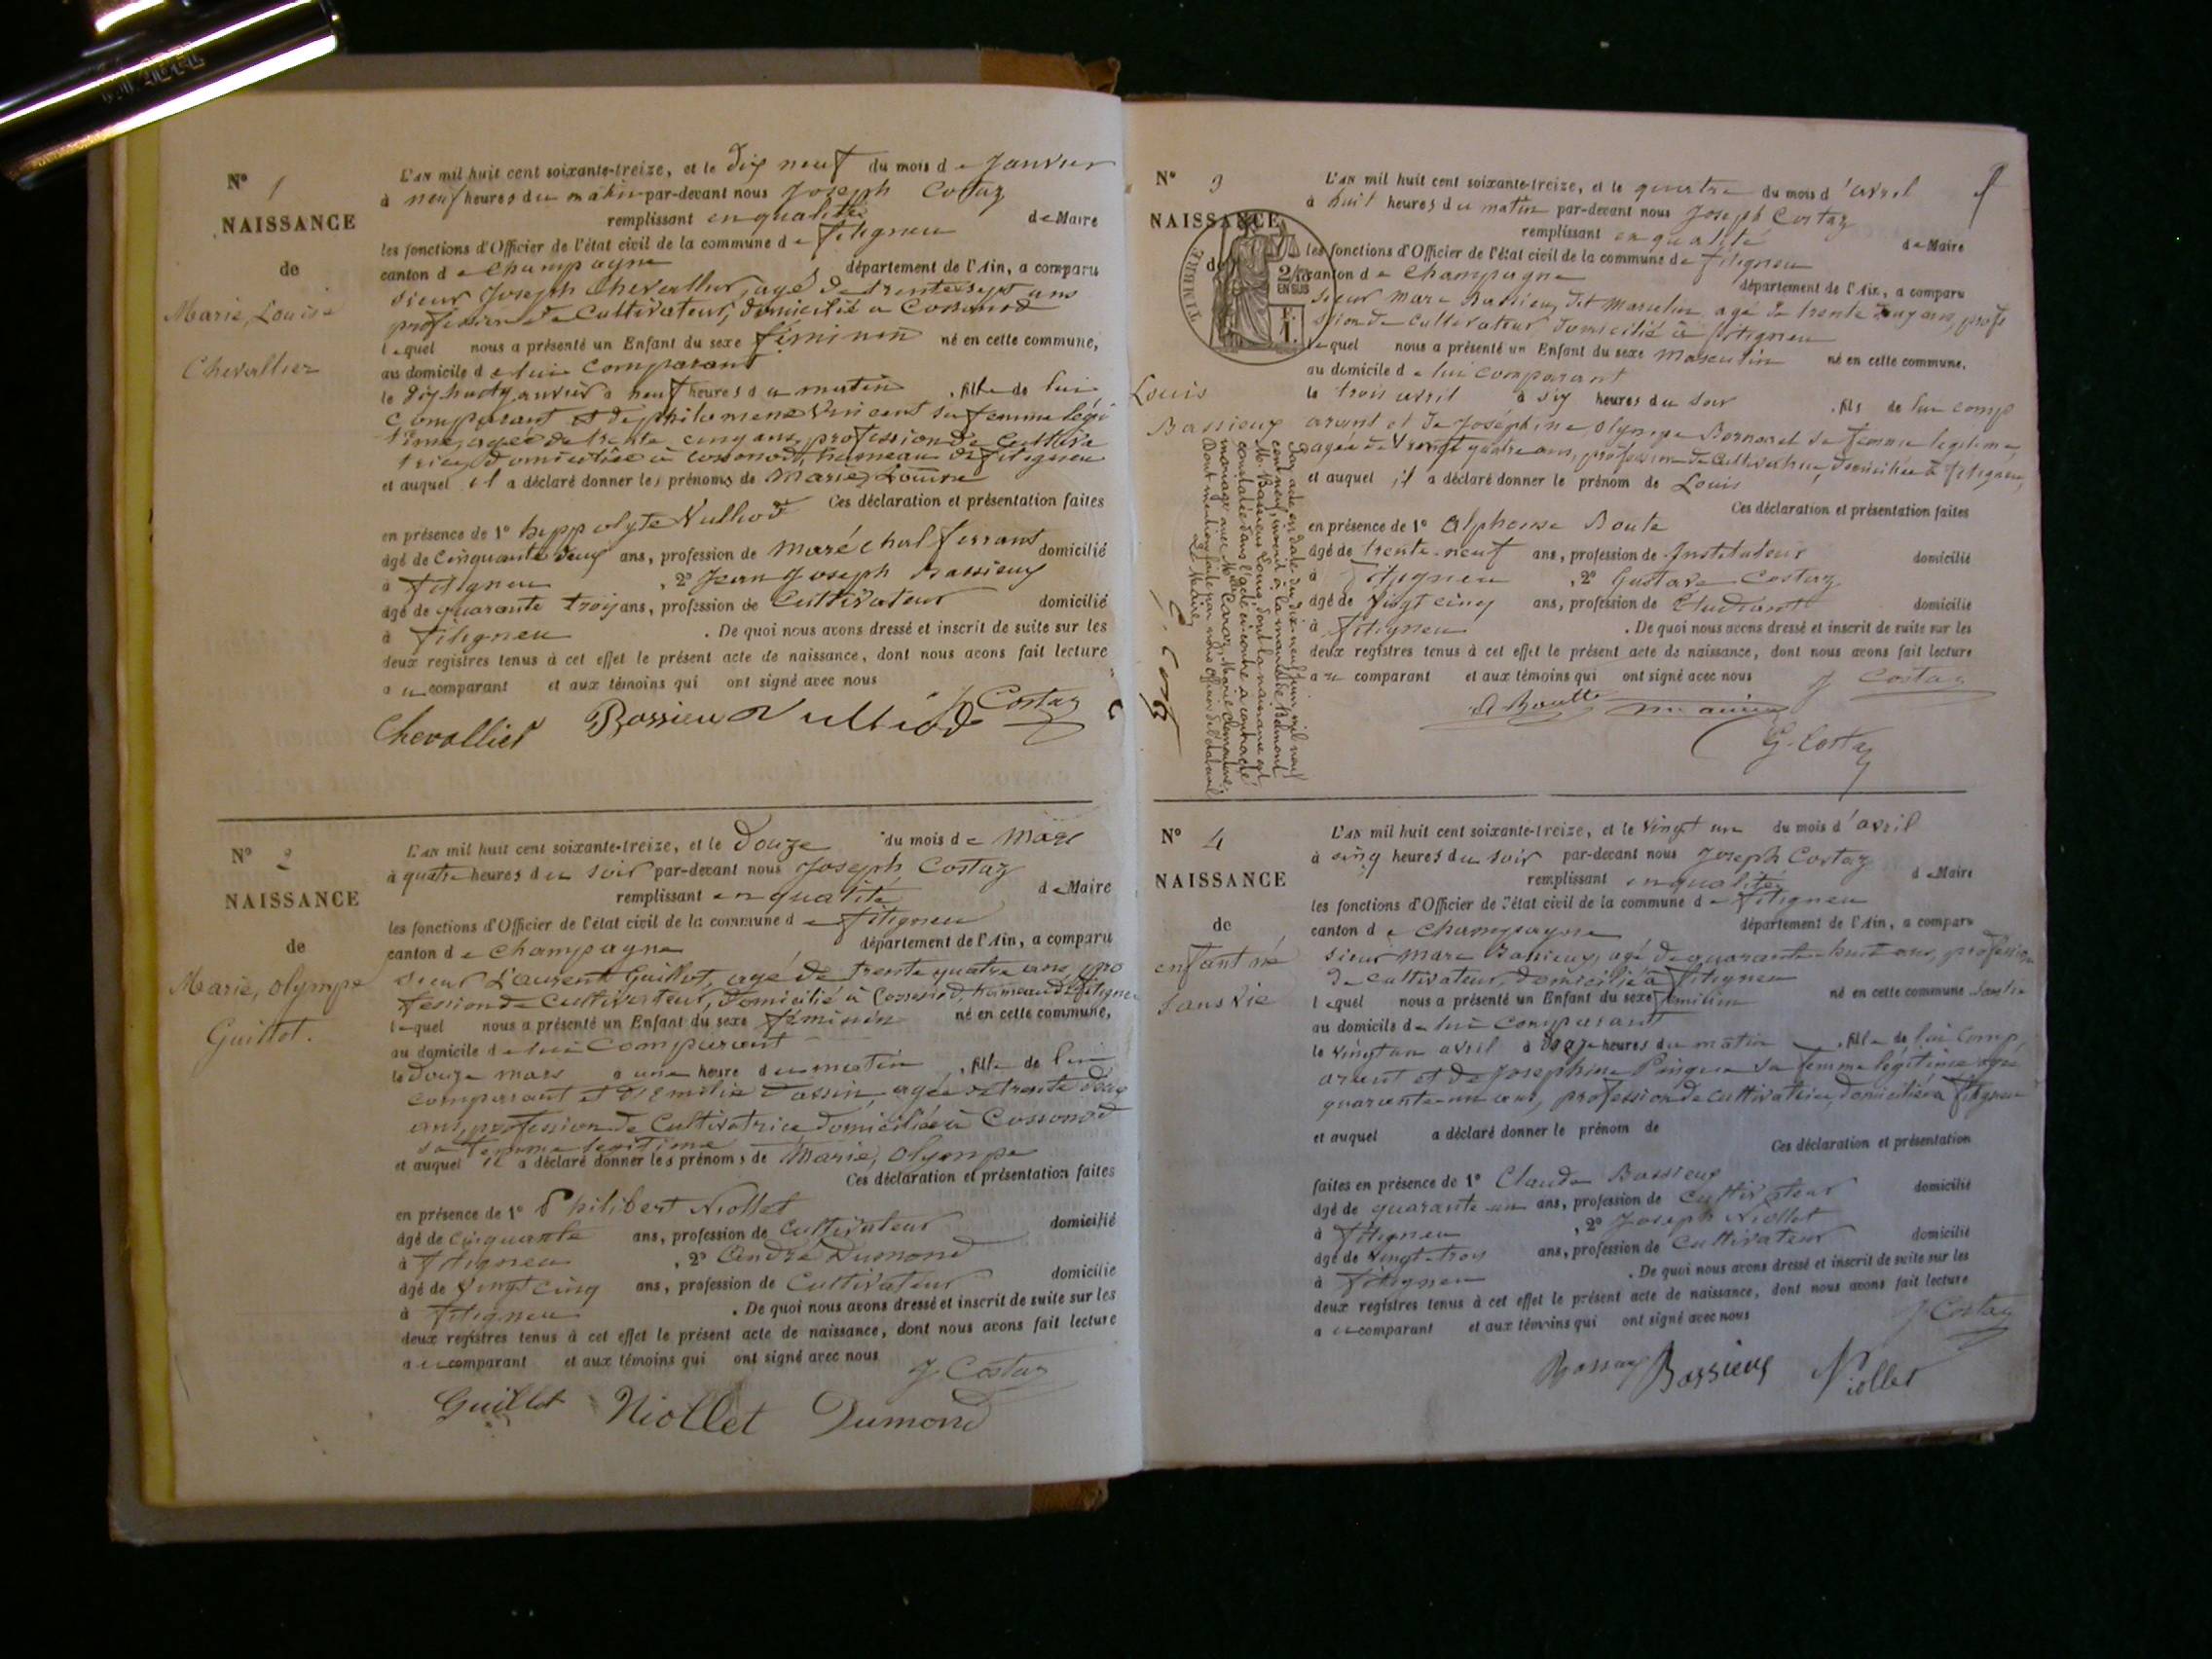 N° 1
NAISSANCE
de
Marie, Louise
Chevallier
L'AN mil huit cent soixante-treize, et le dix neuf du mois de Janvier
à neuf heures du matin par-devant nous Joseph Costaz
remplissant en qualité de Maire
les fonctions d'Officier de l'état civil de la commune de fitigneu
canton de Champagne département de l'Ain, a comparu
sieur Joseph Chevallier, agé de trente sept ans
profession de Cultivateur, domicilié a Cossonod
lequel nous a présenté un Enfant du sexe féminin né en cette commune,
au domicile de lui Comparant
le dix huit janvier à neuf heures du matin , fille de lui
Comparant et de philomene Vincent sa femme légi
time, agée de trente cinq ans, profession de Cultiva
trice, domiciliée à Cossonod, hameau de fitigneu
et auquel il a déclaré donner les prénoms de Marie, Louise
Ces déclaration et présentation faites
en présence de 1° hyppolyte Vulliod
âgé de Cinquante deux ans, profession de Maréchal ferrant domicilié
à fitigneu , 2° Jean Joseph Bassieux
âgé de quarante trois ans, profession de Cultivateur domicilié
à fitigneu . De quoi nous avons dressé et inscrit de suite sur les
deux registres tenus à cet effet le présent acte de naissance, dont nous avons fait lecture
au comparant et aux témoins qui ont signé avec nous
J Costaz
Chevallier Bassieu Vulliod
N° 2
NAISSANCE
de
Marie, olympe
Guillot.
L'AN mil huit cent soixante-treize, et le douze du mois de Mars
à quatre heures du soir par-devant nous Joseph Costaz
remplissant en qualité de Maire
les fonctions d'Officier de l'état civil de la commune de fitigneu
canton de Champagne département de l'Ain, a comparu
sieur Laurent Guillot, agé de trente quatre ans, pro
fession de Cultivateur, domicilié à Cossonod, hameau de fitigneu
lequel nous a présenté un Enfant du sexe féminin né en cette commune,
au domicile de lui Comparant
le douze mars à une heure du matin , fille de lui
comparant et d'Emélie Tassin, agée de trente deux
ans, profession de Cultivatrice domiciliée à Cossonod
sa femme legitime
et auquel il a déclaré donner les prénoms de Marie, olympe
Ces déclaration et présentation faites
en présence de 1° Philibert Niollet
âgé de Cinquante ans, profession de Cultivateur domicilié
à fitigneu , 2° André Dumond
âgé de Vingt cinq ans, profession de Cultivateur domicilié
à fitigneu . De quoi nous avons dressé et inscrit de suite sur les
deux registres tenus à cet effet le présent acte de naissance, dont nous avons fait lecture
au comparant et aux témoins qui ont signé avec nous
J Costaz
Guillot Niollet Dumond
N° 3
NAISSANCE
de
TIMBRE
2/10
EN SUS
F.
1.
Louis
Bassieux
L'AN mil huit cent soixante-treize, et le quatre du mois d'avril
à huit heures du matin par-devant nous Joseph Costaz
remplissant en qualité de Maire
les fonctions d'Officier de l'état civil de la commune de fitigneu
canton de Champagne département de l'Ain, a comparu
sieur Marc Bassieux dit Marcelin, agé de trente cinq ans, profe
ssion de Cultivateur domicilié à fitigneu
lequel nous a présenté un Enfant du sexe masculin né en cette commune,
au domicile de lui comparant
le trois avril à six heures du soir , fils de lui comp
arant et de Joséphine, olympe Bornard sa femme legitime,
agée de Vingt quatre ans, profession de Cultivatrice, domiciliée à fitigneu,
et auquel il a déclaré donner le prénom de Louis
Ces déclaration et présentation faites
en présence de 1° Alphonse Boute
âgé de trente-neuf ans, profession de Instituteur domicilié
à fitigneu , 2° Gustave Costaz
âgé de Vingt cinq ans, profession de Etudiant domicilié
à fitigneu . De quoi nous avons dressé et inscrit de suite sur les
deux registres tenus à cet effet le présent acte de naissance, dont nous avons fait lecture
au comparant et aux témoins qui ont signé avec nous
J Costaz
G. Costaz
Par acte en date du dix-neuf juin mil neuf
cent neuf, inscrit à la mairie de Belmont
M. Bassieux Louis, dont la naissance est
constatée dans l'acte ci-contre a contracté
mariage avec Marie
Dont mention faite par nous officier de l'état civil
Le Maire,
N° 4
NAISSANCE
de
enfant né
sans vie
L'AN mil huit cent soixante-treize, et le vingt un du mois d'avril
à cinq heures du soir par-devant nous Joseph Costaz
remplissant en qualité de Maire
les fonctions d'Officier de l'état civil de la commune de fitigneu
canton de Champagne département de l'Ain, a comparu
sieur Marc Bassieux, agé de quarante huit ans, profession
de cultivateur, domicilié à fitigneu
lequel nous a présenté un Enfant du sexe féminin né en cette commune sans vie
au domicile de lui Comparant
le vingt un avril à heures du matin , fille de lui comp
arant et de Josephine sa femme légitime agée
quarante-un ans, profession de cultivatrice, domiciliée à fitigneu
et auquel a déclaré donner le prénom de
Ces déclaration et présentation
faites en présence de 1° Claude Bassieux
âgé de quarante un ans, profession de Cultivateur domicilié
à fitigneu , 2° Joseph Niollet
âgé de Vingt-trois ans, profession de Cultivateur domicilié
à fitigneu . De quoi nous avons dressé et inscrit de suite sur les
deux registres tenus à cet effet le présent acte de naissance, dont nous avons fait lecture
au comparant et aux témoins qui ont signé avec nous
J Costaz
Bassieux Niollet